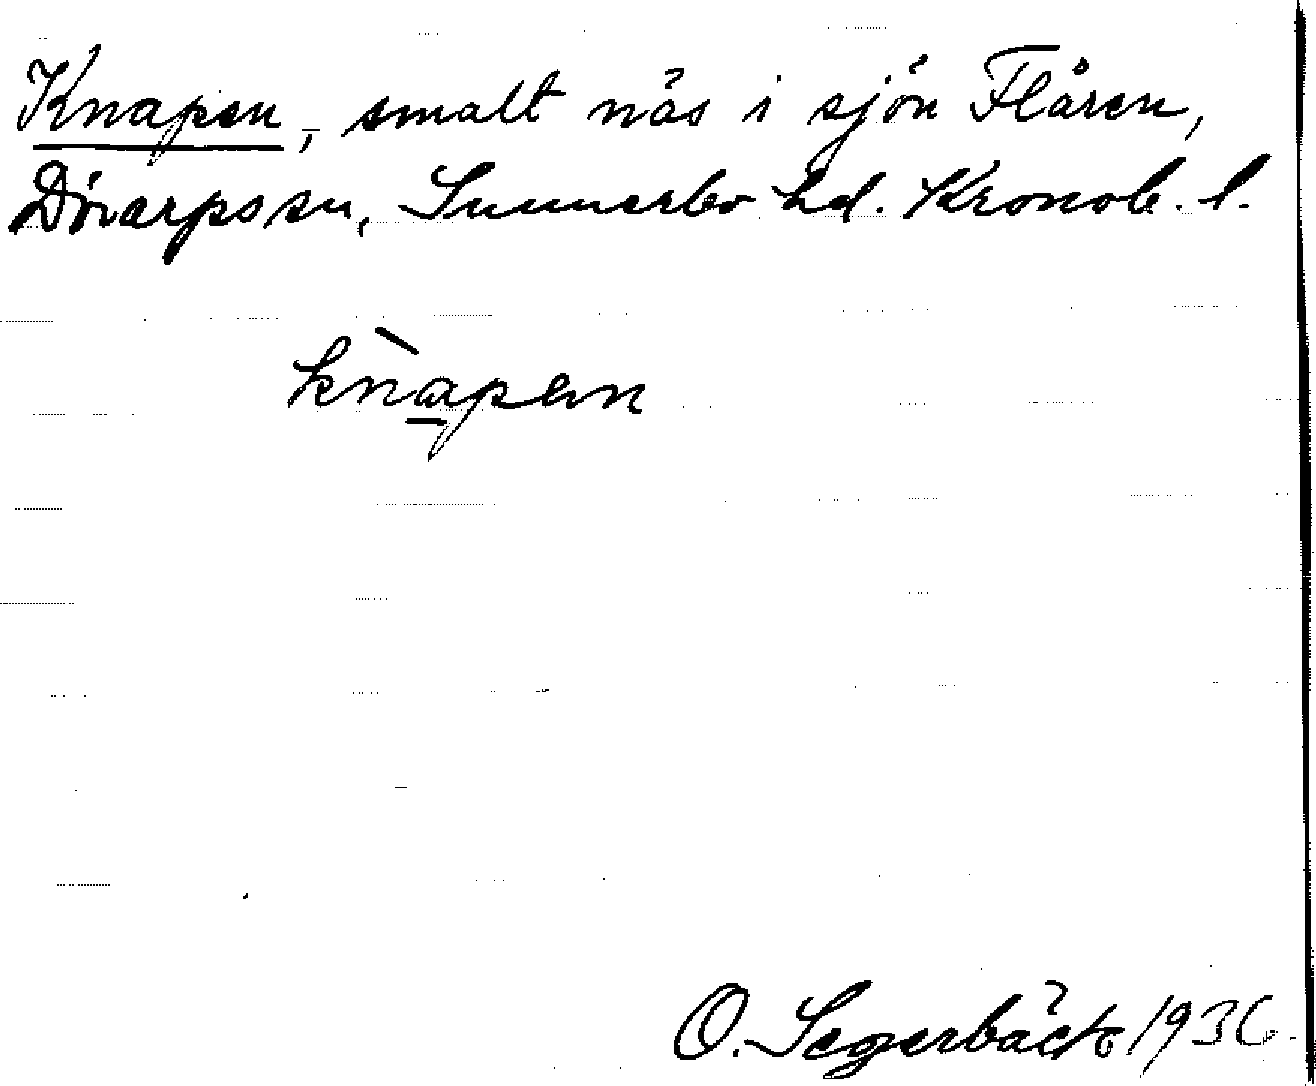 Knapen, smalt näs i sjön Flåren,
Dörarps sn, Sunnerbo hd. Kronob. l.
knàpen
O. Segerbäck 1936